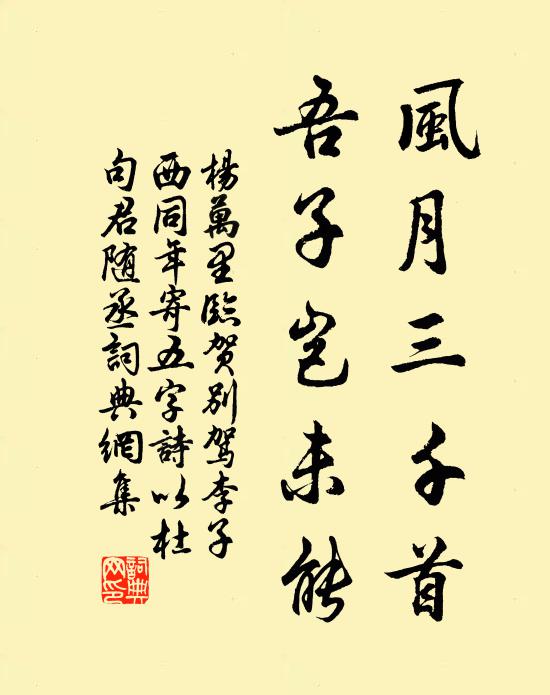 風月三千首
吾子豈未能
楊萬里臨賀別駕李子
西同年寄五字詩以杜
句君隨丞詞典網集
詞典
网印